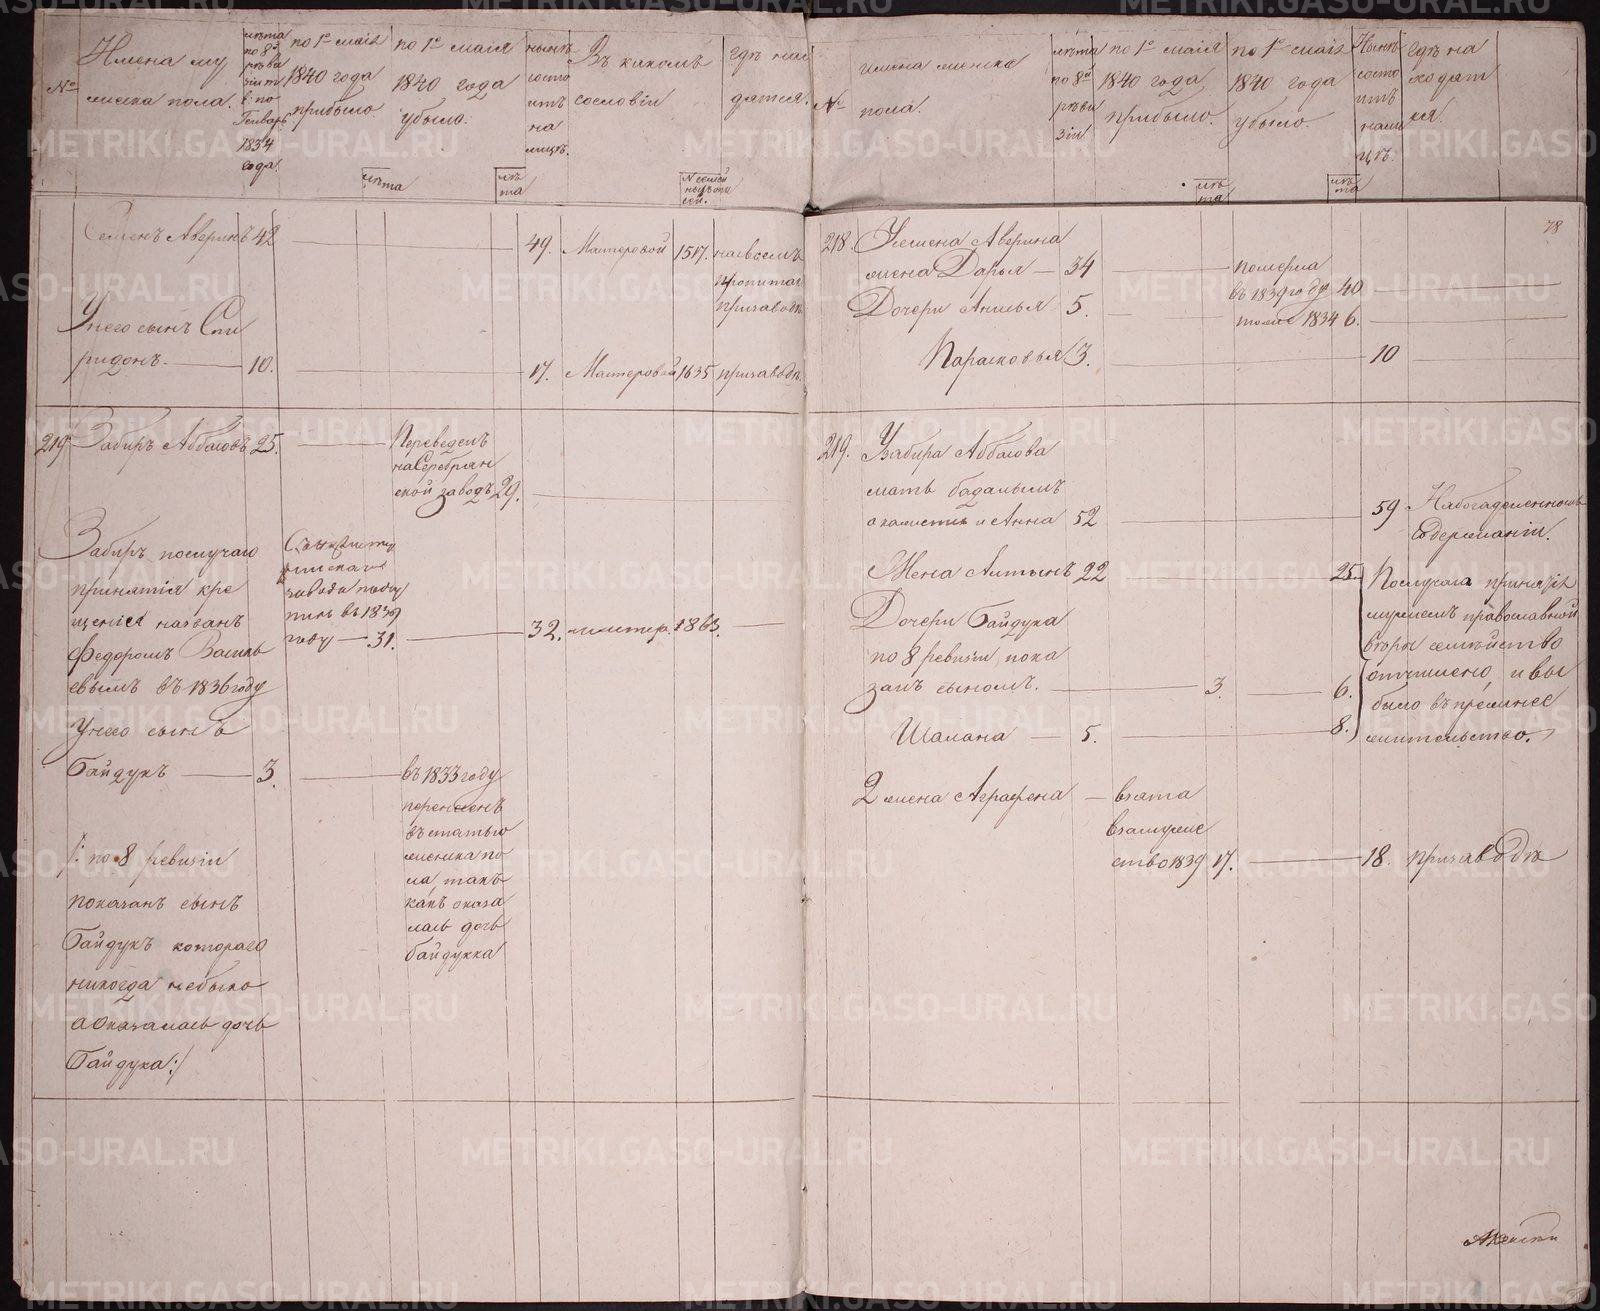 №
Имена му
жеска пола.
лѣта
по 8й
реви
зіи
по
Генварь
1834
года.
по 1е маія
1840 года
прибыло.
лѣта
по 1е маія
1840 года
убыло.
лѣ
та
нынѣ
состо
итъ
на
лицѣ.
Въ какомъ
сословіи
№ семей
ныхъ спи
сей.
гдѣ нахо
дятся.
Семенъ Аверинъ 42 49. Мастеровой 1517. на своемъ
пропитан
при заводѣ
У него сынъ Спи
ридонъ. 10. 17. Мастеровой 1635 при заводѣ.
219 Забиръ Аббасовъ 25. Переведенъ
на Серебрян
ской заводъ 29.
Забиръ по случаю
принятія кре
щенія названъ
Федоромъ Василь
евымъ въ 1836 году
завода посту
пилъ въ 1839
году 31. 32. мастер. 1863.
У него сынъ
Байдукъ 3. въ 1833 году
перенесенъ
въ статью
женска по
ла, такъ
какъ оказа
лась дочь
байдукка
/: по 8 ревизіи
показанъ сынъ
Байдукъ котораго
никогда небыло
а оказалась дочь
Байдука :/
№
имена женска
пола.
лѣта
по 8й
реви
зіи
по 1е маія
1840 года
прибыло.
лѣ
та
по 1е маія
1840 года
убыло.
лѣ
та
Нынѣ
состо
итъ
нали
цѣ.
гдѣ на
ходят
ся.
78
218. У Семена Аверина
жена Дарья 34 померла
въ 1839 году 40
Дочери Анисья 5. тоже 1834 6.
Парасковья 3. 10
219. У Забира Аббасова
мать бадалымъ
окаместь и Анна 52 59 На богаделенномъ
содержаніи.
Жена Алтынъ 22 25. По случаю принятія
мужемъ православной
вѣры семейство
отчислено, и вы
было въ прежнее
жительство.
Дочери Байдука
по 8 ревизіи пока
занъ сыномъ. 3. 6.
Шалана 5. 8.
2 жена Аграфена взята
в замуже
ство 1839 17. 18. при заводѣ